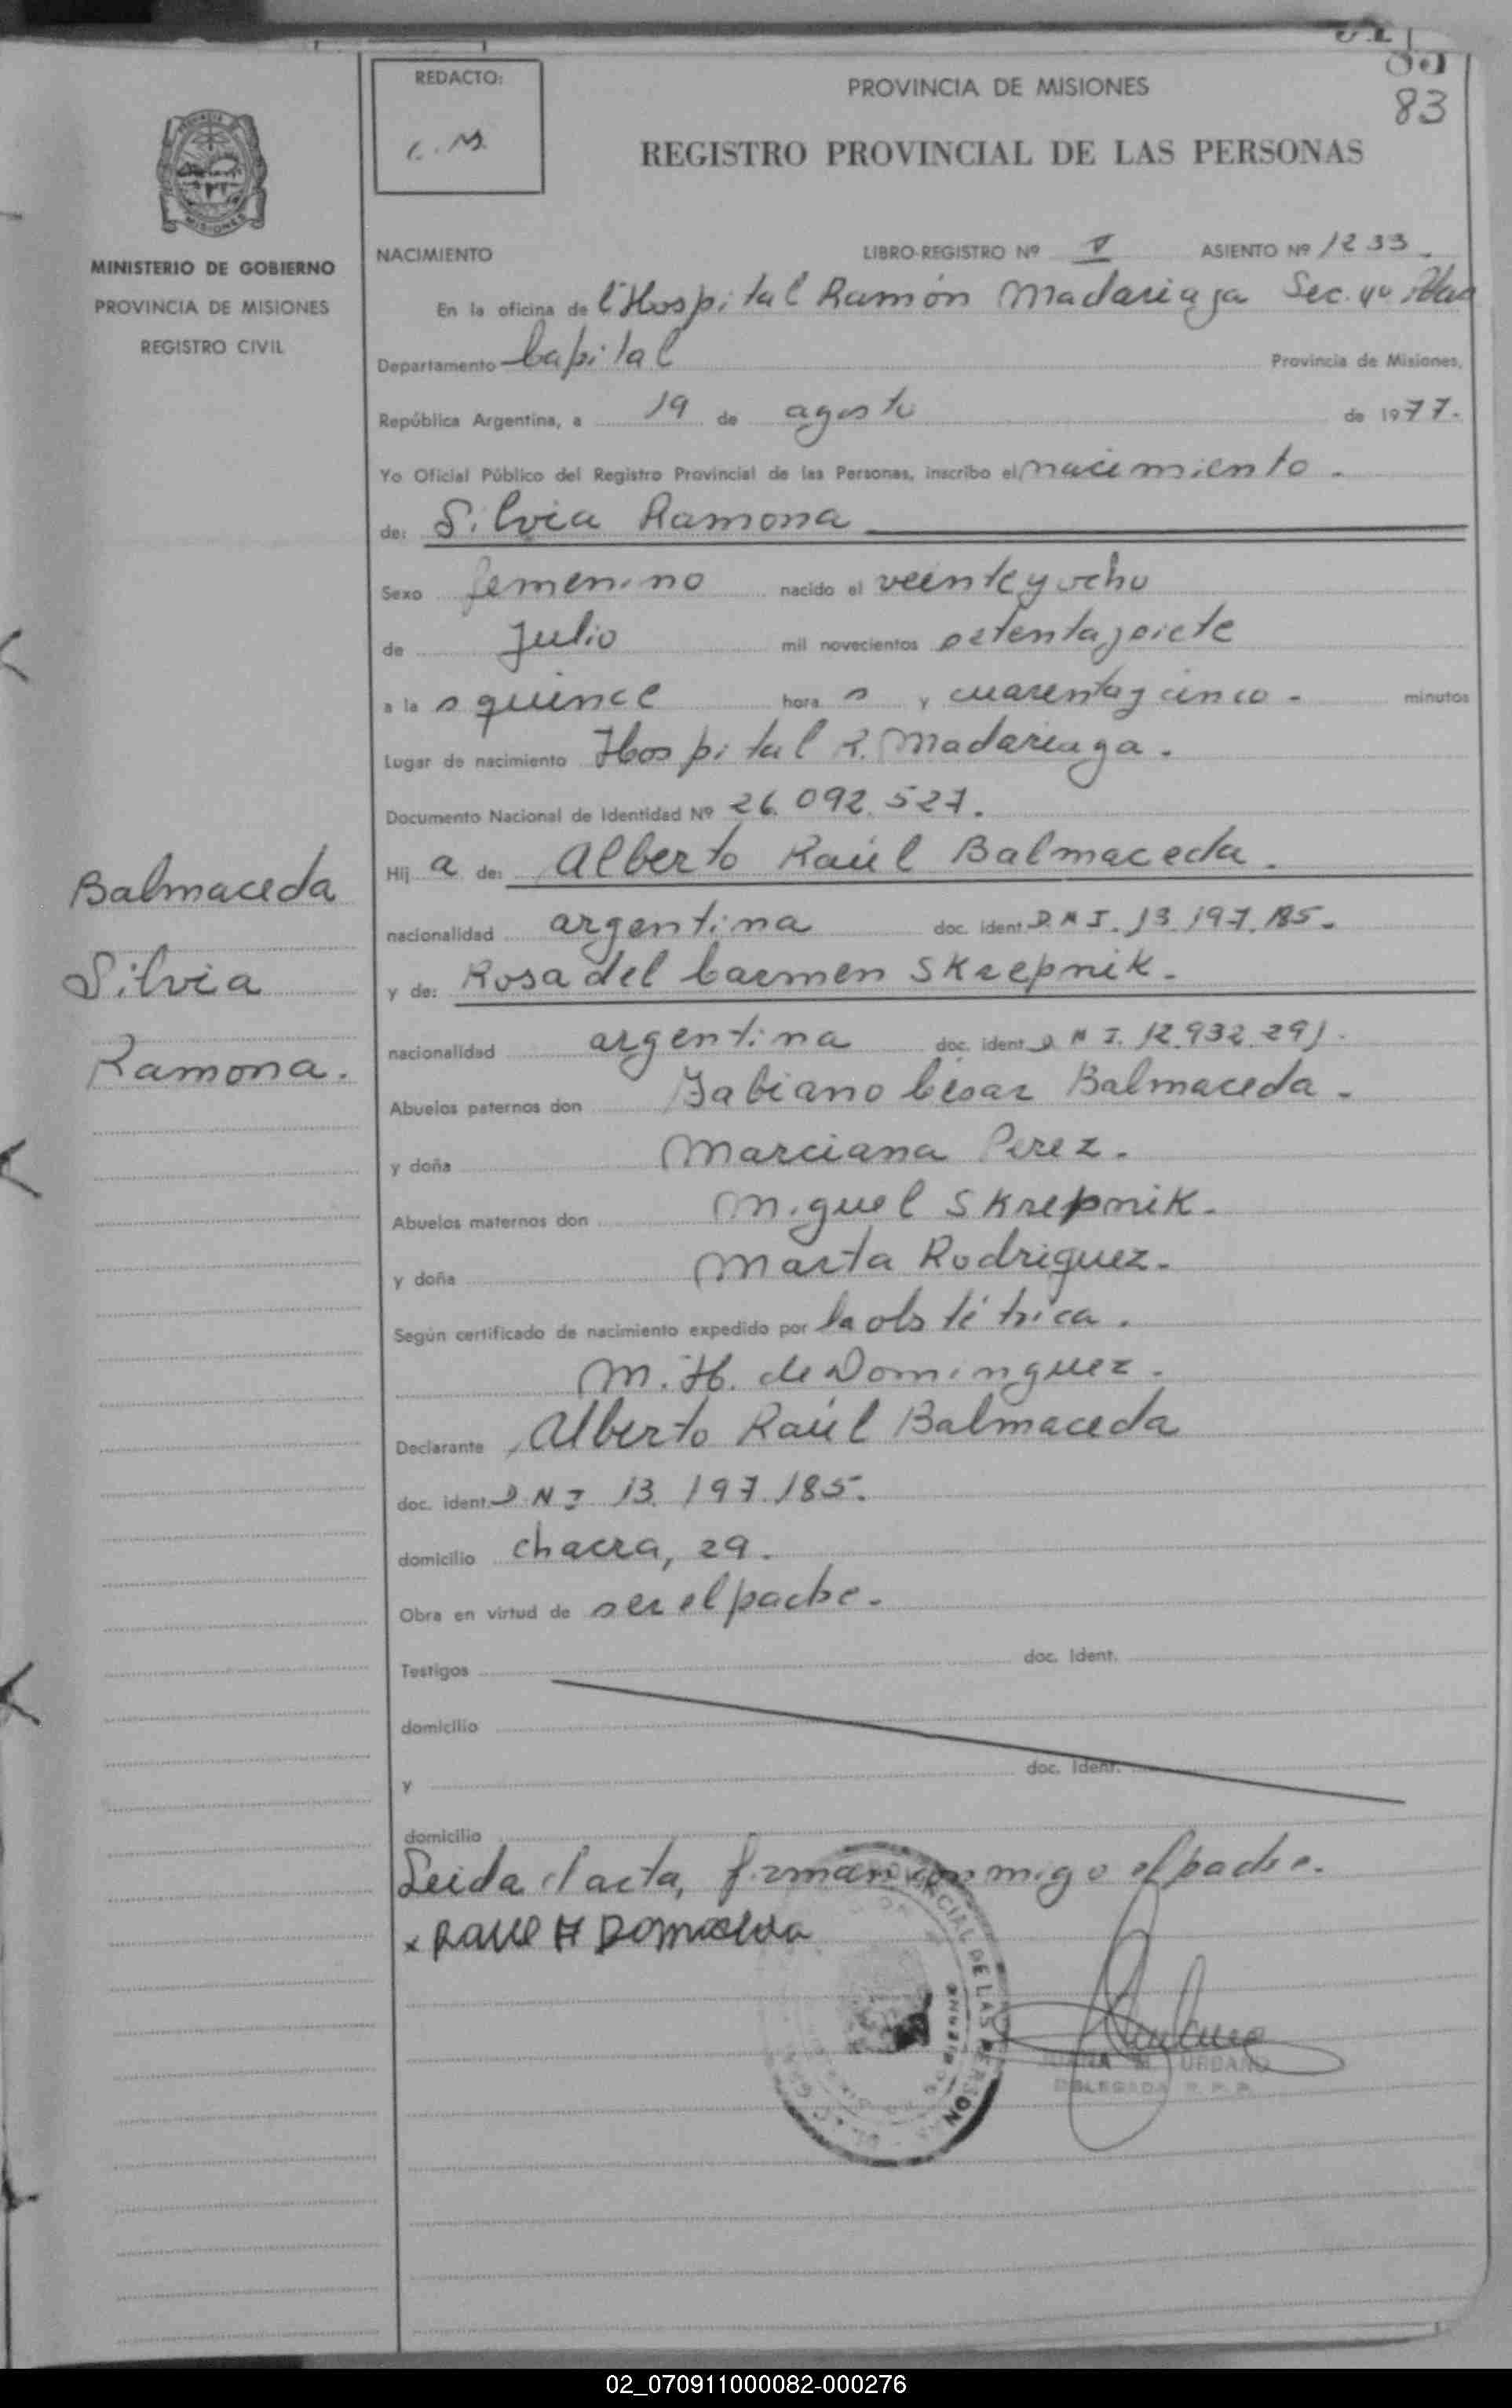 83
REDACTO:
C. M.
PROVINCIA DE MISIONES
REGISTRO PROVINCIAL DE LAS PERSONAS
MISIONES
MINISTERIO DE GOBIERNO
PROVINCIA DE MISIONES
REGISTRO CIVIL
NACIMIENTO LIBRO-REGISTRO Nº V ASIENTO Nº 1233.
En la oficina de Hospital Ramón Madariaga Sec. 4º
Departamento Capital Provincia de Misiones,
República Argentina, a 19 de agosto de 1977.
Yo Oficial Público del Registro Provincial de las Personas, inscribo el nacimiento.
de: Silvia Ramona
Sexo femenino nacido el veinteyocho
de Julio mil novecientos setentaysiete
a la s quince hora s y cuarentaycinco - minutos
Lugar de nacimiento Hospital R. Madariaga.
Documento Nacional de Identidad Nº 26.092.527.
Hij a de: Alberto Raúl Balmaceda.
nacionalidad argentina doc. ident. D.N.I. 13.197.185.
y de: Rosa del Carmen Skrepnik.
nacionalidad argentina doc. ident. D.N.I. 12.932.291.
Abuelos paternos don Fabiano César Balmaceda.
y doña Marciana Perez.
Abuelos maternos don Miguel Skrepnik.
y doña Marta Rodriguez.
Según certificado de nacimiento expedido por la obstétrica.
M. H. de Dominguez.
Declarante Alberto Raúl Balmaceda
doc. ident. D.N.I 13.197.185.
domicilio chacra, 29.
Obra en virtud de ser el padre.
Testigos doc. Ident.
domicilio
y doc. Ident.
domicilio
Leida el acta, firman conmigo el padre.
URBANO
DELEGADA R. P. P.
Balmaceda
Silvia
Ramona.
02_070911000082-000276